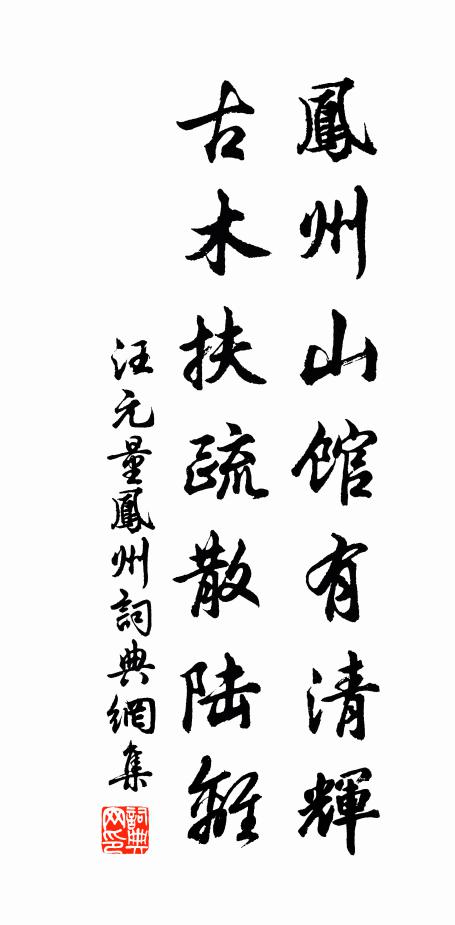 鳳州山館有清輝
古木扶疏散陆離
汪元量鳳州詞典網集
詞典网印